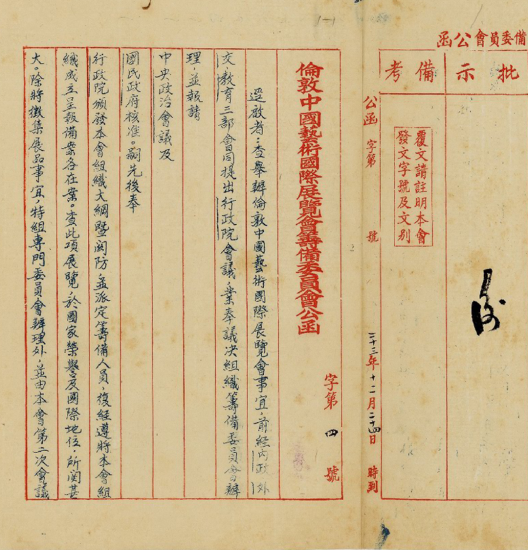 備委員會公函
批示
備考
覆文請註明本會
發文字號及文別
公函 字第 號 二十三年十一月二十四日 時到
倫敦中國藝術國際展覽會籌備委員會公函
字第四號
逕啟者:查舉辦倫敦中國藝術國際展覽會事宜,前經內政、外
交、教育三部會同提出行政院會議,業奉議決組織籌備委員會辦
理,並報請
中央政治會議及
國民政府核准。嗣先後奉
行政院頒發本會組織大綱暨關防,並派定籌備人員,復經遵將本會組
織成立呈報備案各在案。查此項展覽,於國家榮譽及國際地位,所關甚
大。除將徵集展品事宜,特組專門委員會辦理外,並由本會第二次會議